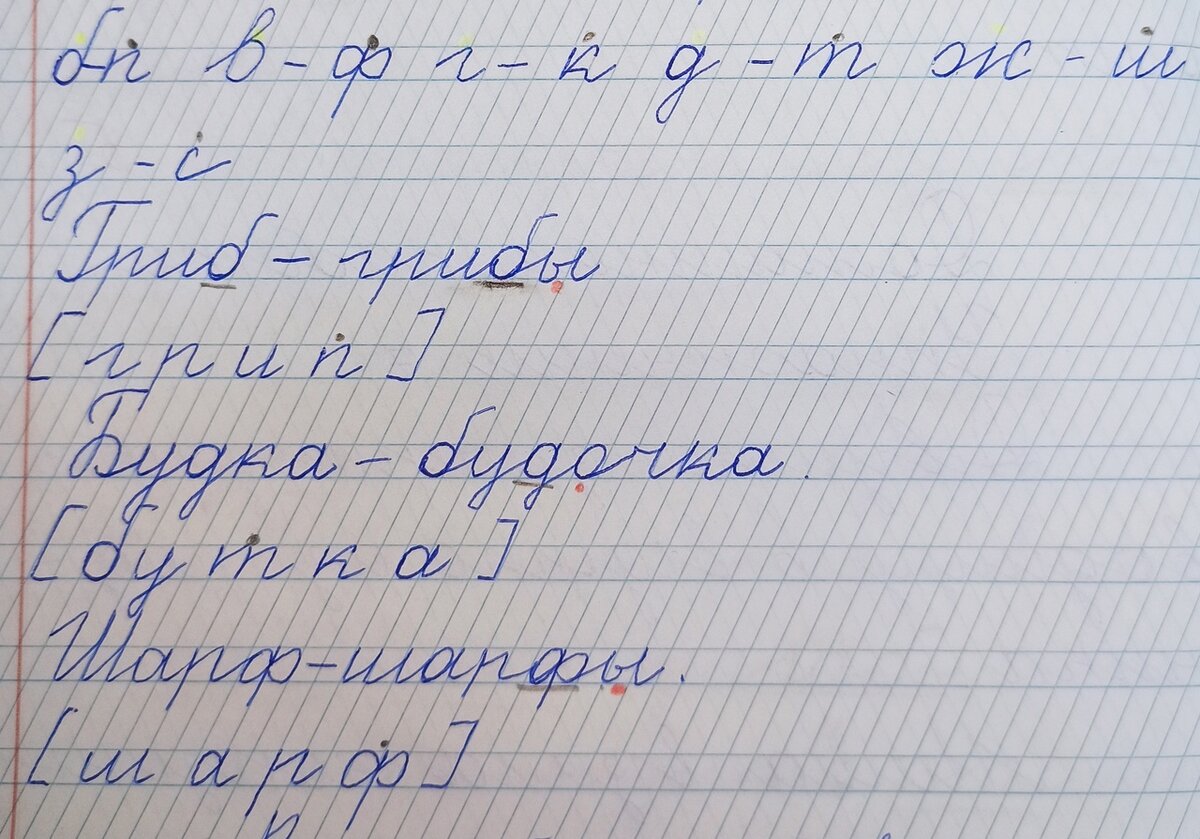 б-п в - ф г - к д - т ж - ш
з - с
Гриб - грибы
[грип]
Будка - будочка.
[бутка]
Шарф - шарфы.
[шарф]